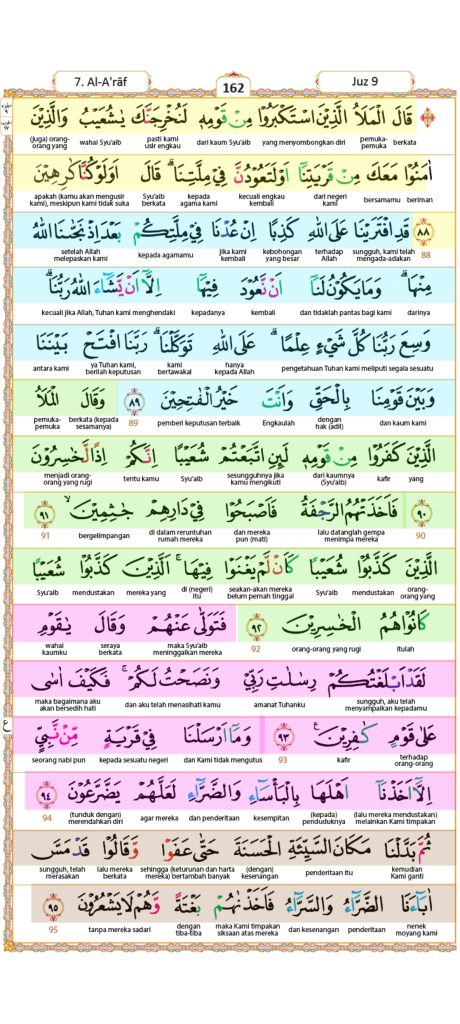 7. Al-A'rāf
162
Juz 9
قَالَ الْمَلَاُ الَّذِيْنَ اسْتَكْبَرُوْا مِنْ قَوْمِهٖ لَنُخْرِجَنَّكَ يٰشُعَيْبُ وَالَّذِيْنَ
berkata pemuka-pemuka yang menyombongkan diri dari kaum Syu'aib pasti kami usir engkau wahai Syu'aib (juga) orang-orang yang
اٰمَنُوْا مَعَكَ مِنْ قَرْيَتِنَآ اَوْ لَتَعُوْدُنَّ فِيْ مِلَّتِنَاۗ قَالَ اَوَلَوْ كُنَّا كٰرِهِيْنَ
beriman bersamamu dari negeri kami kecuali engkau kembali kepada agama kami Syu'aib berkata apakah (kamu akan mengusir kami), meskipun kami tidak suka
٨٨ قَدِ افْتَرَيْنَا عَلَى اللّٰهِ كَذِبًا اِنْ عُدْنَا فِيْ مِلَّتِكُمْ بَعْدَ اِذْ نَجّٰىنَا اللّٰهُ
88 sungguh, kami telah mengada-adakan terhadap Allah kebohongan yang besar jika kami kembali kepada agamamu setelah Allah melepaskan kami
مِنْهَاۗ وَمَا يَكُوْنُ لَنَآ اَنْ نَّعُوْدَ فِيْهَآ اِلَّآ اَنْ يَّشَاۤءَ اللّٰهُ رَبُّنَاۗ
darinya dan tidaklah pantas bagi kami kembali kepadanya kecuali jika Allah, Tuhan kami menghendaki
وَسِعَ رَبُّنَا كُلَّ شَيْءٍ عِلْمًاۗ عَلَى اللّٰهِ تَوَكَّلْنَاۗ رَبَّنَا افْتَحْ بَيْنَنَا
pengetahuan Tuhan kami meliputi segala sesuatu hanya kepada Allah kami bertawakal ya Tuhan kami, berilah keputusan antara kami
وَبَيْنَ قَوْمِنَا بِالْحَقِّ وَاَنْتَ خَيْرُ الْفٰتِحِيْنَ ٨٩ وَقَالَ الْمَلَاُ
dan kaum kami dengan hak (adil) Engkaulah pemberi keputusan terbaik 89 berkata (kepada sesamanya) pemuka-pemuka
الَّذِيْنَ كَفَرُوْا مِنْ قَوْمِهٖ لَىِٕنِ اتَّبَعْتُمْ شُعَيْبًا اِنَّكُمْ اِذًا لَّخٰسِرُوْنَ
yang kafir dari kaumnya (Syu'aib) sesungguhnya jika kamu mengikuti Syu'aib tentu kamu menjadi orang-orang yang rugi
٩٠ فَاَخَذَتْهُمُ الرَّجْفَةُ فَاَصْبَحُوْا فِيْ دَارِهِمْ جٰثِمِيْنَۙ ٩١
90 lalu datanglah gempa menimpa mereka dan mereka pun (mati) di dalam reruntuhan rumah mereka bergelimpangan 91
الَّذِيْنَ كَذَّبُوْا شُعَيْبًا كَاَنْ لَّمْ يَغْنَوْا فِيْهَاۚ اَلَّذِيْنَ كَذَّبُوْا شُعَيْبًا
orang-orang yang mendustakan Syu'aib seakan-akan mereka belum pernah tinggal di (negeri) itu mereka yang mendustakan Syu'aib
كَانُوْا هُمُ الْخٰسِرِيْنَ ٩٢ فَتَوَلّٰى عَنْهُمْ وَقَالَ يٰقَوْمِ
itulah orang-orang yang rugi 92 maka Syu'aib meninggalkan mereka seraya berkata wahai kaumku
لَقَدْ اَبْلَغْتُكُمْ رِسٰلٰتِ رَبِّيْ وَنَصَحْتُ لَكُمْۚ فَكَيْفَ اٰسٰى
sungguh, aku telah menyampaikan kepadamu amanat Tuhanku dan aku telah menasihati kamu maka bagaimana aku akan bersedih hati
عَلٰى قَوْمٍ كٰفِرِيْنَ ٩٣ وَمَآ اَرْسَلْنَا فِيْ قَرْيَةٍ مِّنْ نَّبِيٍّ
terhadap orang-orang kafir 93 dan Kami tidak mengutus kepada sesuatu negeri seorang nabi pun
اِلَّآ اَخَذْنَآ اَهْلَهَا بِالْبَأْسَاۤءِ وَالضَّرَّاۤءِ لَعَلَّهُمْ يَضَّرَّعُوْنَ ٩٤
(lalu mereka mendustakan) melainkan Kami timpakan (kepada) penduduknya kesempitan dan penderitaan agar mereka (tunduk dengan) merendahkan diri 94
ثُمَّ بَدَّلْنَا مَكَانَ السَّيِّئَةِ الْحَسَنَةَ حَتّٰى عَفَوْا وَّقَالُوْا قَدْ مَسَّ
kemudian Kami ganti penderitaan itu (dengan) kesenangan sehingga (keturunan dan harta mereka) bertambah banyak lalu mereka berkata sungguh, telah merasakan
اٰبَاۤءَنَا الضَّرَّاۤءُ وَالسَّرَّاۤءُ فَاَخَذْنٰهُمْ بَغْتَةً وَّهُمْ لَا يَشْعُرُوْنَ ٩٥
nenek moyang kami penderitaan dan kesenangan maka Kami timpakan siksaan atas mereka dengan tiba-tiba tanpa mereka sadari 95
ع